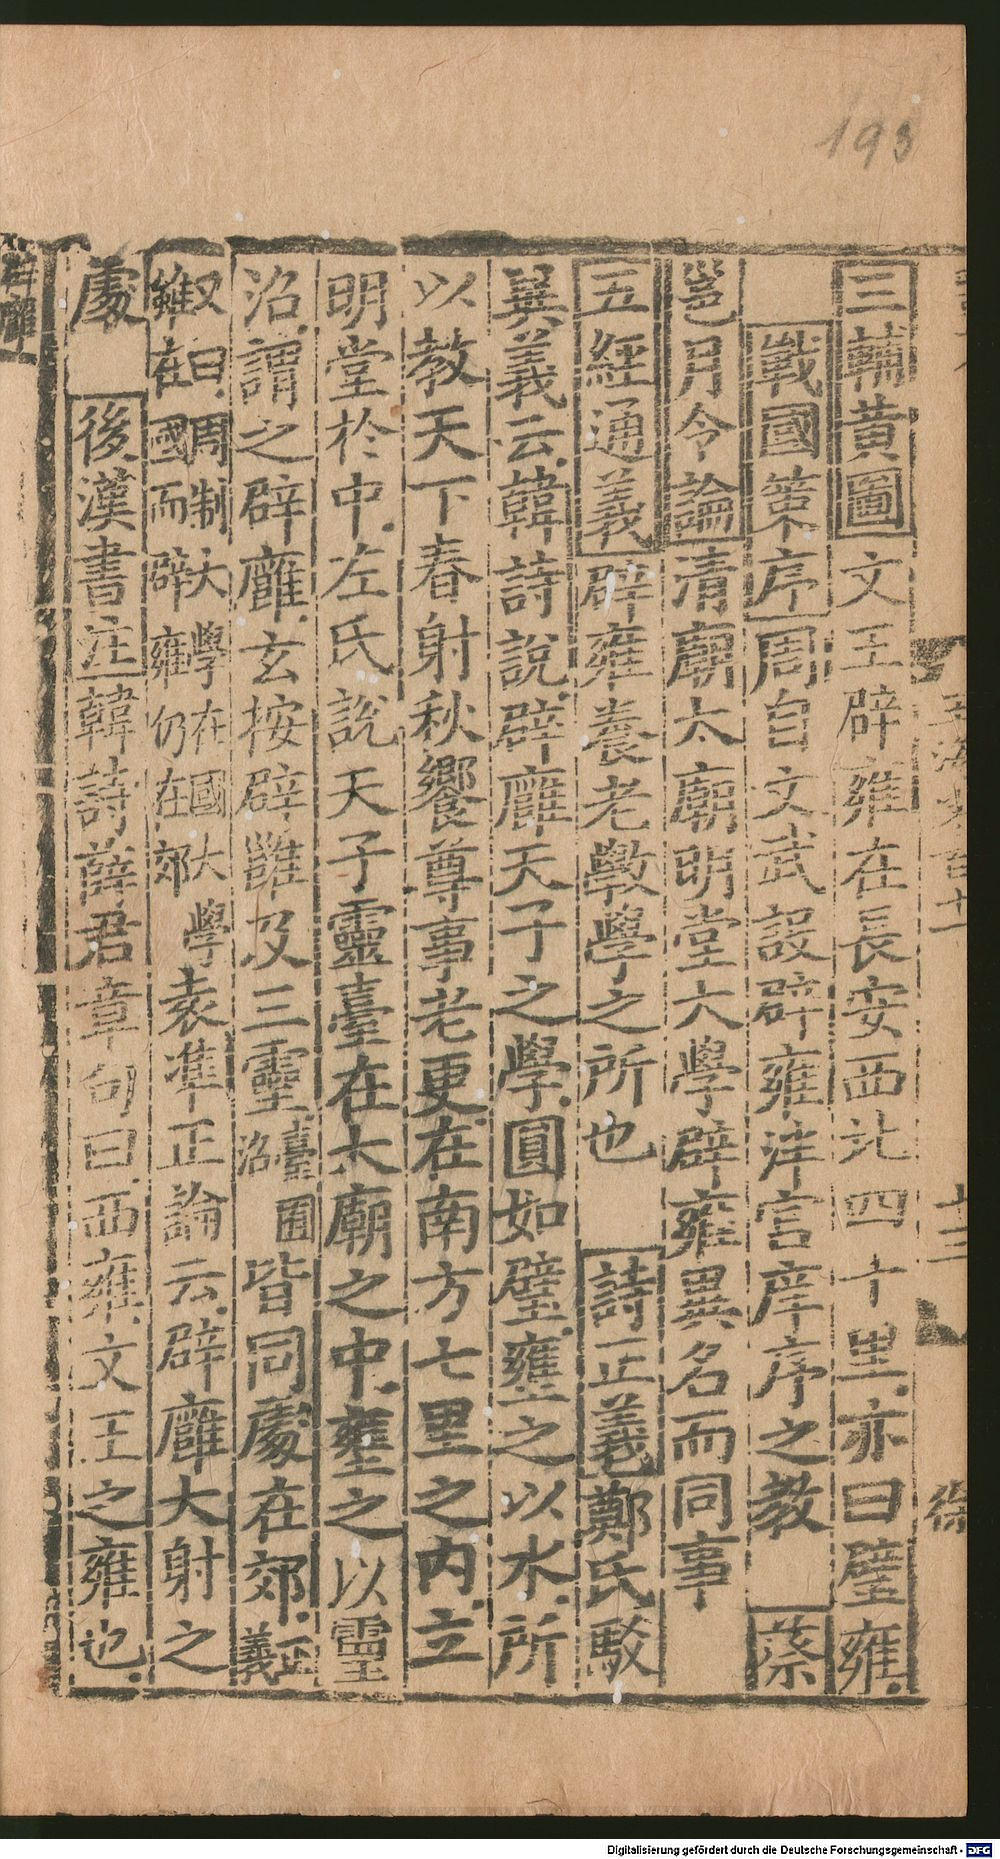 193
三輔黃圖文王辟雍在長安西北四十里亦曰璧雍
戰國策序周自文武設辟雍泮宮庠序之教 蔡
邕月令論清廟太廟明堂大學辟雍異名而同事
五經通義辟雍養老教學之所也 詩正義鄭氏駁
異義云韓詩說辟廱天子之學圓如璧壅之以水所
以教天下春射秋饗尊事老更在南方七里之內立
明堂於中左氏說天子靈臺在太廟之中壅之以靈
沼謂之辟廱玄按辟雝及三靈臺囿沼皆同處在郊正義
又曰周制大學在國大學
雖在國而辟雍仍在郊袁準正論云辟廱大射之
處 後漢書注韓詩薛君章句曰西雍文王之雍也
Digitalisierung gefördert durch die Deutsche Forschungsgemeinschaft - DFG